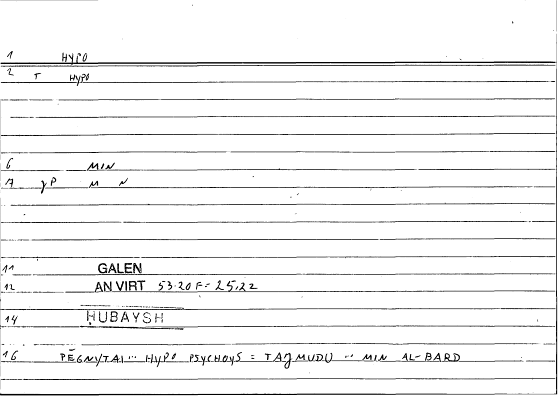 1 HYPO
2 T HYPO
6 MIN
7 γP M N
11 GALEN
12 AN VIRT 53.20 F = 25,22
14 ḤUBAYSH
16 PĒGNYTAI ·· HYPO PSYCHOYS = TAǦMUDU ·· MIN AL-BARD